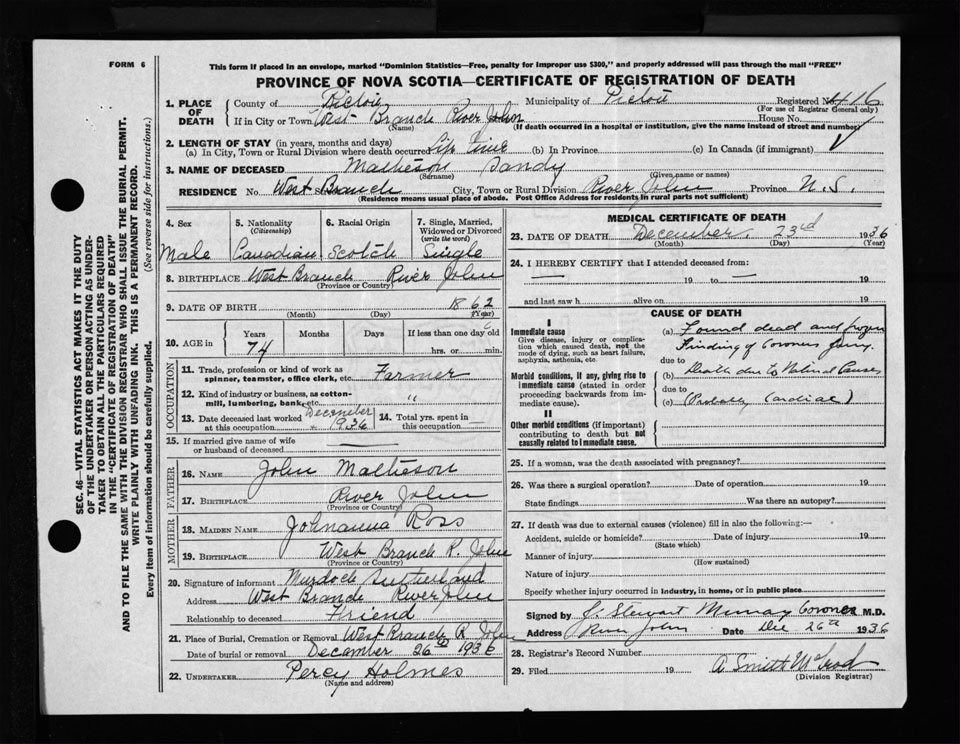 FORM 6
This form if placed in an envelope, marked "Dominion Statistics—Free, penalty for improper use $300," and properly addressed will pass through the mail "FREE"
PROVINCE OF NOVA SCOTIA—CERTIFICATE OF REGISTRATION OF DEATH
SEC. 46—VITAL STATISTICS ACT MAKES IT THE DUTY
OF THE UNDERTAKER OR PERSON ACTING AS UNDER-
TAKER TO OBTAIN ALL THE PARTICULARS REQUIRED
IN THE "CERTIFICATE OF REGISTRATION OF DEATH"
AND TO FILE THE SAME WITH THE DIVISION REGISTRAR WHO SHALL ISSUE THE BURIAL PERMIT.
WRITE PLAINLY WITH UNFADING INK. THIS IS A PERMANENT RECORD.
Every item of information should be carefully supplied. (See reverse side for instructions.)
1. PLACE OF DEATH County of Pictou Municipality of Pictou Registered No. 416
(For use of Registrar General only)
If in City or Town West Branch River John House No.
(Name) (If death occurred in a hospital or institution, give the name instead of street and number)
2. LENGTH OF STAY (in years, months and days)
(a) In City, Town or Rural Division where death occurred Life time (b) In Province (c) In Canada (if immigrant)
3. NAME OF DECEASED Matheson Sandy
(Surname) (Given name or names)
RESIDENCE No. West Branch City, Town or Rural Division River John Province N.S.
(Residence means usual place of abode. Post Office Address for residents in rural parts not sufficient)
4. Sex 5. Nationality 6. Racial Origin 7. Single, Married,
(Citizenship) Widowed or Divorced
(write the word)
Male Canadian Scotch Single
8. BIRTHPLACE West Branch River John
(Province or Country)
9. DATE OF BIRTH 1862
(Month) (Day) (Year)
10. AGE in Years Months Days If less than one day old
74 hrs. or min.
OCCUPATION
11. Trade, profession or kind of work as
spinner, teamster, office clerk, etc. Farmer
12. Kind of industry or business, as cotton-
mill, lumbering, bank, etc. "
13. Date deceased last worked December 14. Total yrs. spent in
at this occupation 1936 this occupation —
15. If married give name of wife
or husband of deceased
FATHER
16. NAME John Matheson
17. BIRTHPLACE River John
(Province or Country)
MOTHER
18. MAIDEN NAME Johnanna Ross
19. BIRTHPLACE West Branch R. John
(Province or Country)
20. Signature of informant Murdoch Sutherland
Address West Branch River John
Relationship to deceased Friend
21. Place of Burial, Cremation or Removal West Branch R. John
Date of burial or removal December 26th 1936
22. UNDERTAKER Percy Holmes
(Name and address)
MEDICAL CERTIFICATE OF DEATH
23. DATE OF DEATH December 23rd 1936
(Month) (Day) (Year)
24. I HEREBY CERTIFY that I attended deceased from:
— 19 to — 19
and last saw h alive on 19
CAUSE OF DEATH
I
Immediate cause
Give disease, injury or complica-
tion which caused death, not the
mode of dying, such as heart failure,
asphyxia, asthenia, etc.
(a) Found dead and frozen
Finding of Coroners Jury.
due to
Morbid conditions, if any, giving rise to
immediate cause (stated in order
proceeding backwards from im-
mediate cause).
(b) Death due to Natural Causes
due to
(c) (Probably Cardiac)
II
Other morbid conditions (if important)
contributing to death but not
causally related to immediate cause.
25. If a woman, was the death associated with pregnancy?
26. Was there a surgical operation? Date of operation 19
State findings Was there an autopsy?
27. If death was due to external causes (violence) fill in also the following:—
Accident, suicide or homicide? Date of injury 19
(State which)
Manner of injury
(How sustained)
Nature of injury
Specify whether injury occurred in industry, in home, or in public place
Signed by J. Stewart Murray Coroner M.D.
Address River John Date Dec 26th 1936
28. Registrar's Record Number
29. Filed 19 A Smith McLeod
(Division Registrar)